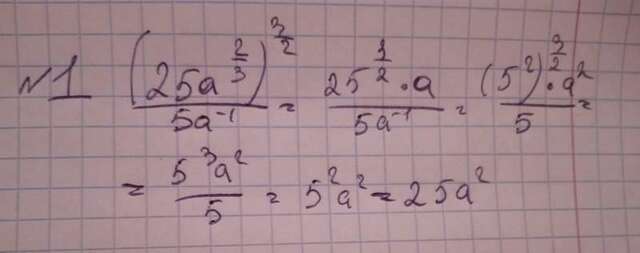 №1 (25a^(2/3))^(3/2) / 5a^(-1) = 25^(3/2) · a / 5a^(-1) = (5^2)^(3/2) · a^2 / 5 =
= 5^3 a^2 / 5 = 5^2 a^2 = 25a^2